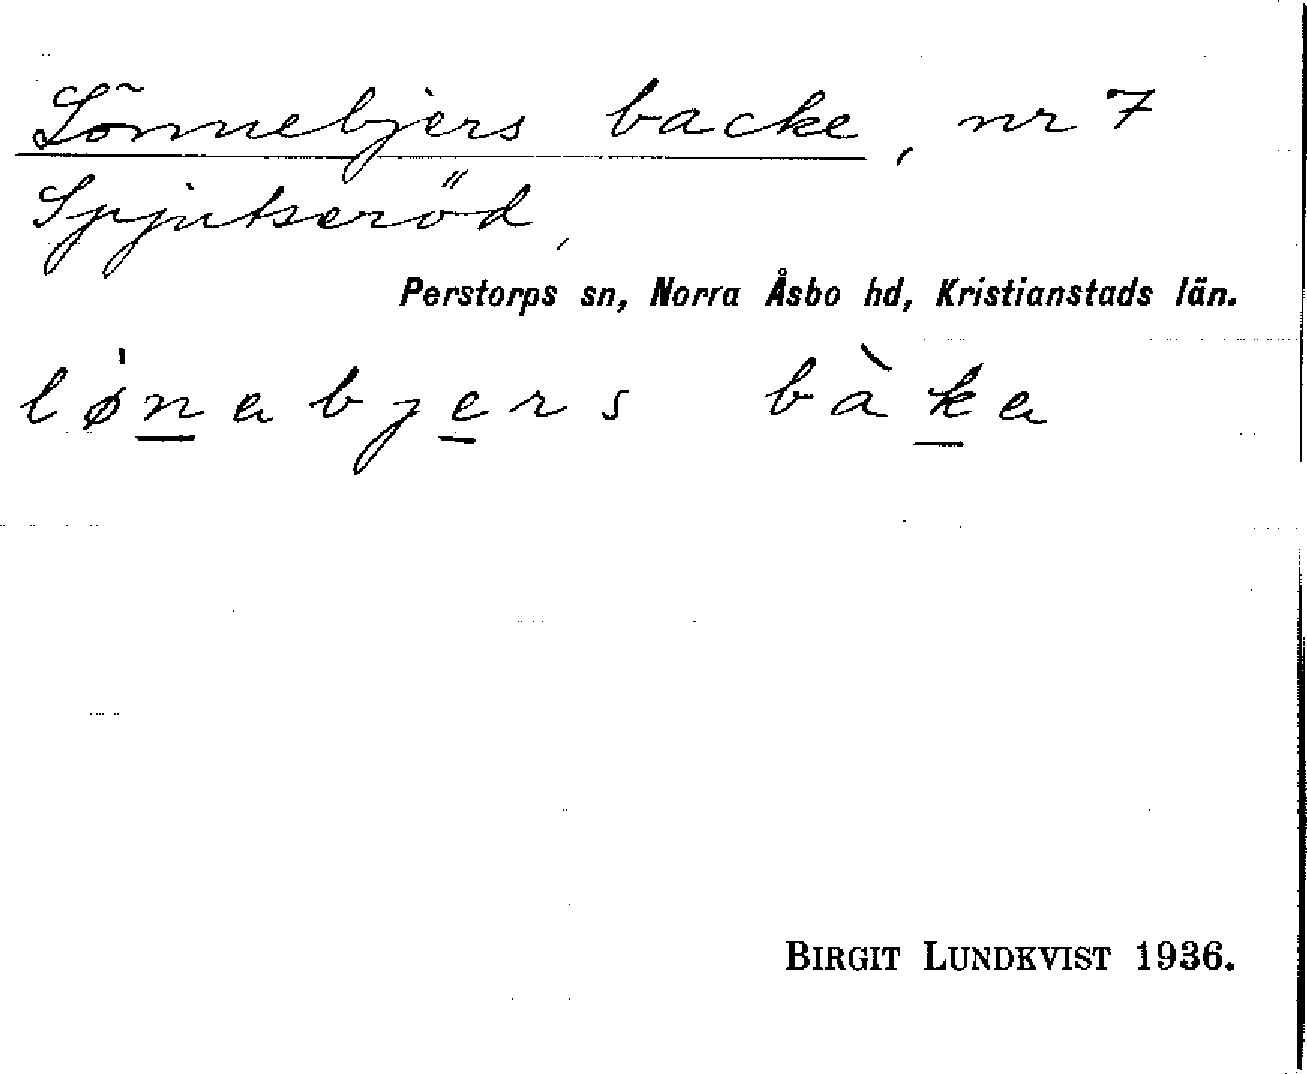 Lönnebjers backe, nr 7
Spjutseröd,
Perstorps sn, Norra Åsbo hd, Kristianstads län.
lø̍n̲abje̲rs bàk̲a
BIRGIT LUNDKVIST 1936.